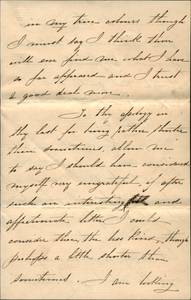 in my true colours though
I must say I think thou
will one find me what I have
so far appeared and I trust
a good deal more.
To thy apology in
thy last for being rather shorter
than sometimes, allow me
to say I should have considered
myself very ungrateful, if after
such an interesting and
affectionate letter I could
consider thee the less kind, though
perhaps a little shorter than
sometimes. I am looking